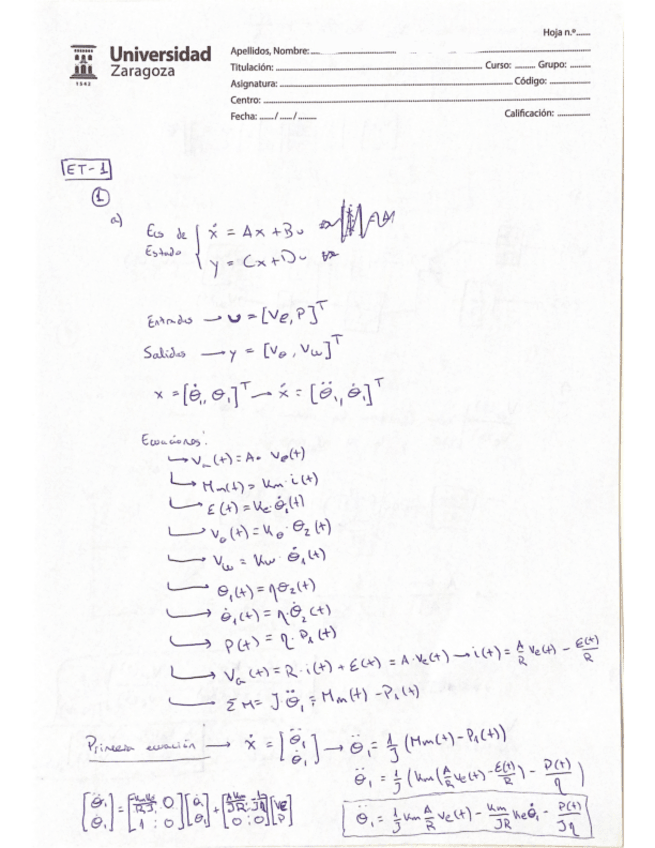 Hoja n.º
Universidad
Zaragoza
1542
Apellidos, Nombre:
Titulación: Curso: Grupo:
Asignatura: Código:
Centro:
Fecha: / / Calificación:
ET-1
1
a) Ecs de Estado { ẋ = Ax + Bu
y = Cx + Du
Entradas → u = [Ve, P]^T
Salidas → y = [Vθ, Vω]^T
x = [θ̇₁, θ₁]^T → ẋ = [θ̈₁, θ̇₁]^T
Ecuaciones:
Va(t) = A · Ve(t)
Mm(t) = Km · i(t)
E(t) = Ke · θ̇₁(t)
Vθ(t) = Kθ · θ₂(t)
Vω = Kω · θ̇₁(t)
θ₁(t) = ηθ₂(t)
θ̇₁(t) = η · θ̇₂(t)
P(t) = η · P₁(t)
Va(t) = R · i(t) + E(t) = A · Ve(t) → i(t) = A/R Ve(t) − E(t)/R
ΣM = J · θ̈₁ = Mm(t) − P₁(t)
Primera ecuación → ẋ = [θ̈₁ θ̇₁] → θ̈₁ = 1/J (Mm(t) − P₁(t))
θ̈₁ = 1/J (Km(A/R Ve(t) − E(t)/R) − P(t)/η)
θ̈₁ = 1/J Km A/R Ve(t) − Km/JR Ke θ̇₁ − P(t)/Jη